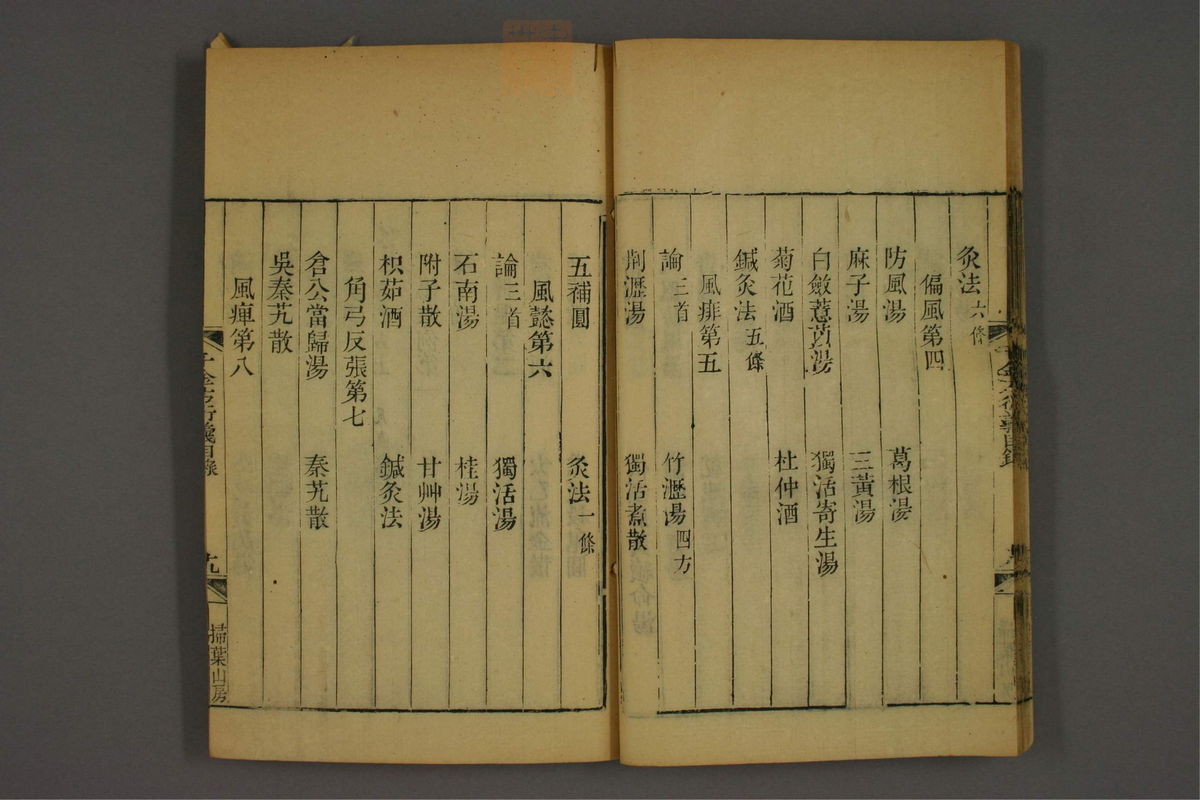 灸法 六條
偏風第四
防風湯 葛根湯
麻子湯 三黃湯
白斂薏苡湯 獨活寄生湯
菊花酒 杜仲酒
鍼灸法 五條
風痱第五
論 三首 竹瀝湯 四方
荆瀝湯 獨活煮散
五補圓 灸法 一條
風懿第六
論 三首 獨活湯
石南湯 桂湯
附子散 甘艸湯
枳茹酒 鍼灸法
角弓反張第七
倉公當歸湯 秦艽散
吳秦艽散
風痺第八
千金方衍義目錄
十九
掃葉山房